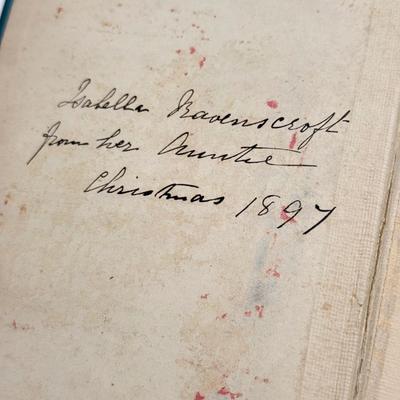 Isabella Ravenscroft
from her Auntie
Christmas 1897